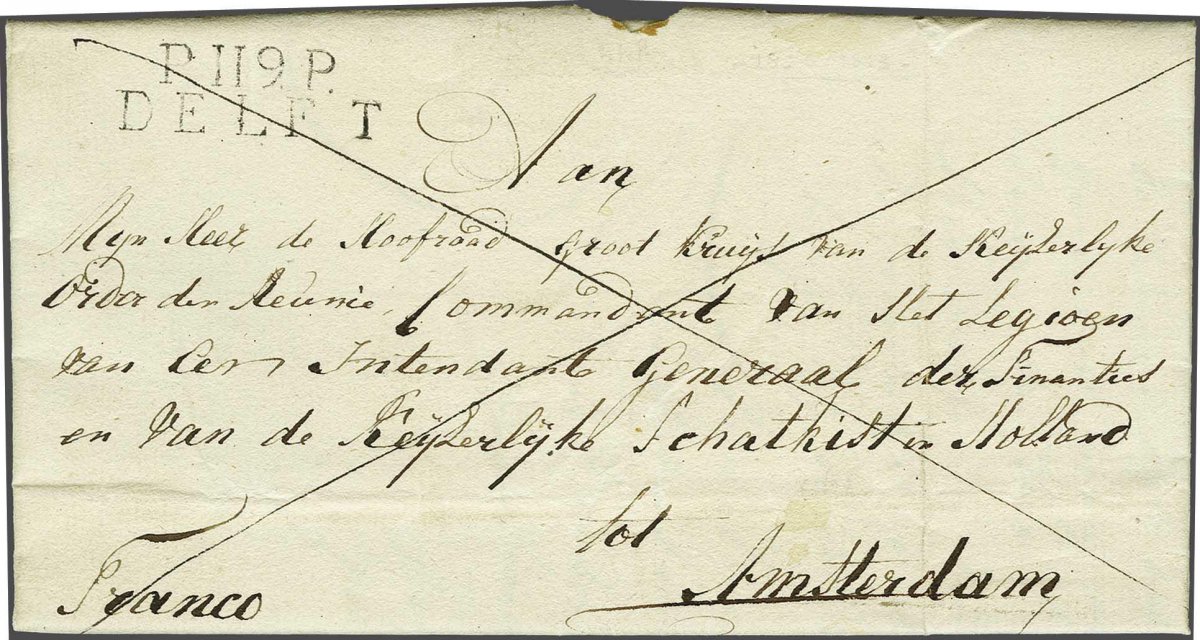 P.119.P.
DELFT
Aan
Mijn Heer de Hoofraad Groot Kruijs van de Keijzerlijke
Order der Reunie, Commandant van Het Legioen
van Eer, Intendant Generaal der Finanties
en Van de Keijzerlijke Schatkist in Holland
tot
Amsterdam
Franco